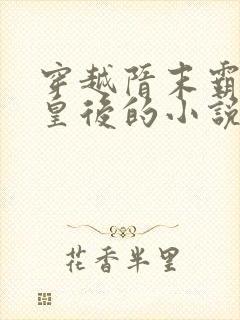 穿越隋末霸
皇後的小説
花香半里